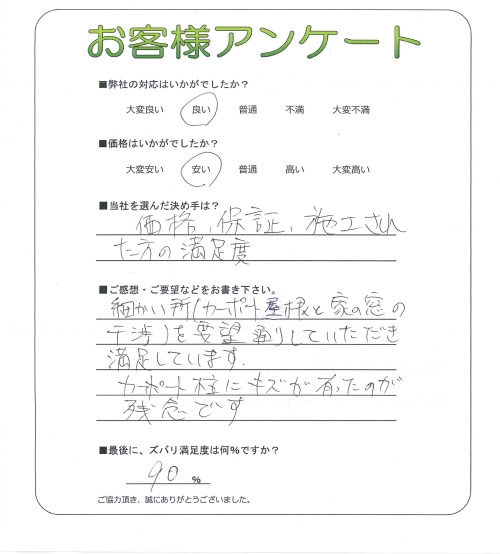 お客様アンケート
■弊社の対応はいかがでしたか？
大変良い 良い 普通 不満 大変不満
■価格はいかがでしたか？
大変安い 安い 普通 高い 大変高い
■当社を選んだ決め手は？
価格、保証、施工され
た方の満足度
■ご感想・ご要望などをお書き下さい。
細かい所(カーポート屋根と家の窓の
干渉)を要望通りしていただき
満足しています.
カーポート柱にキズが有ったのが
残念です
■最後に、ズバリ満足度は何％ですか？
90 %
ご協力頂き、誠にありがとうございました。